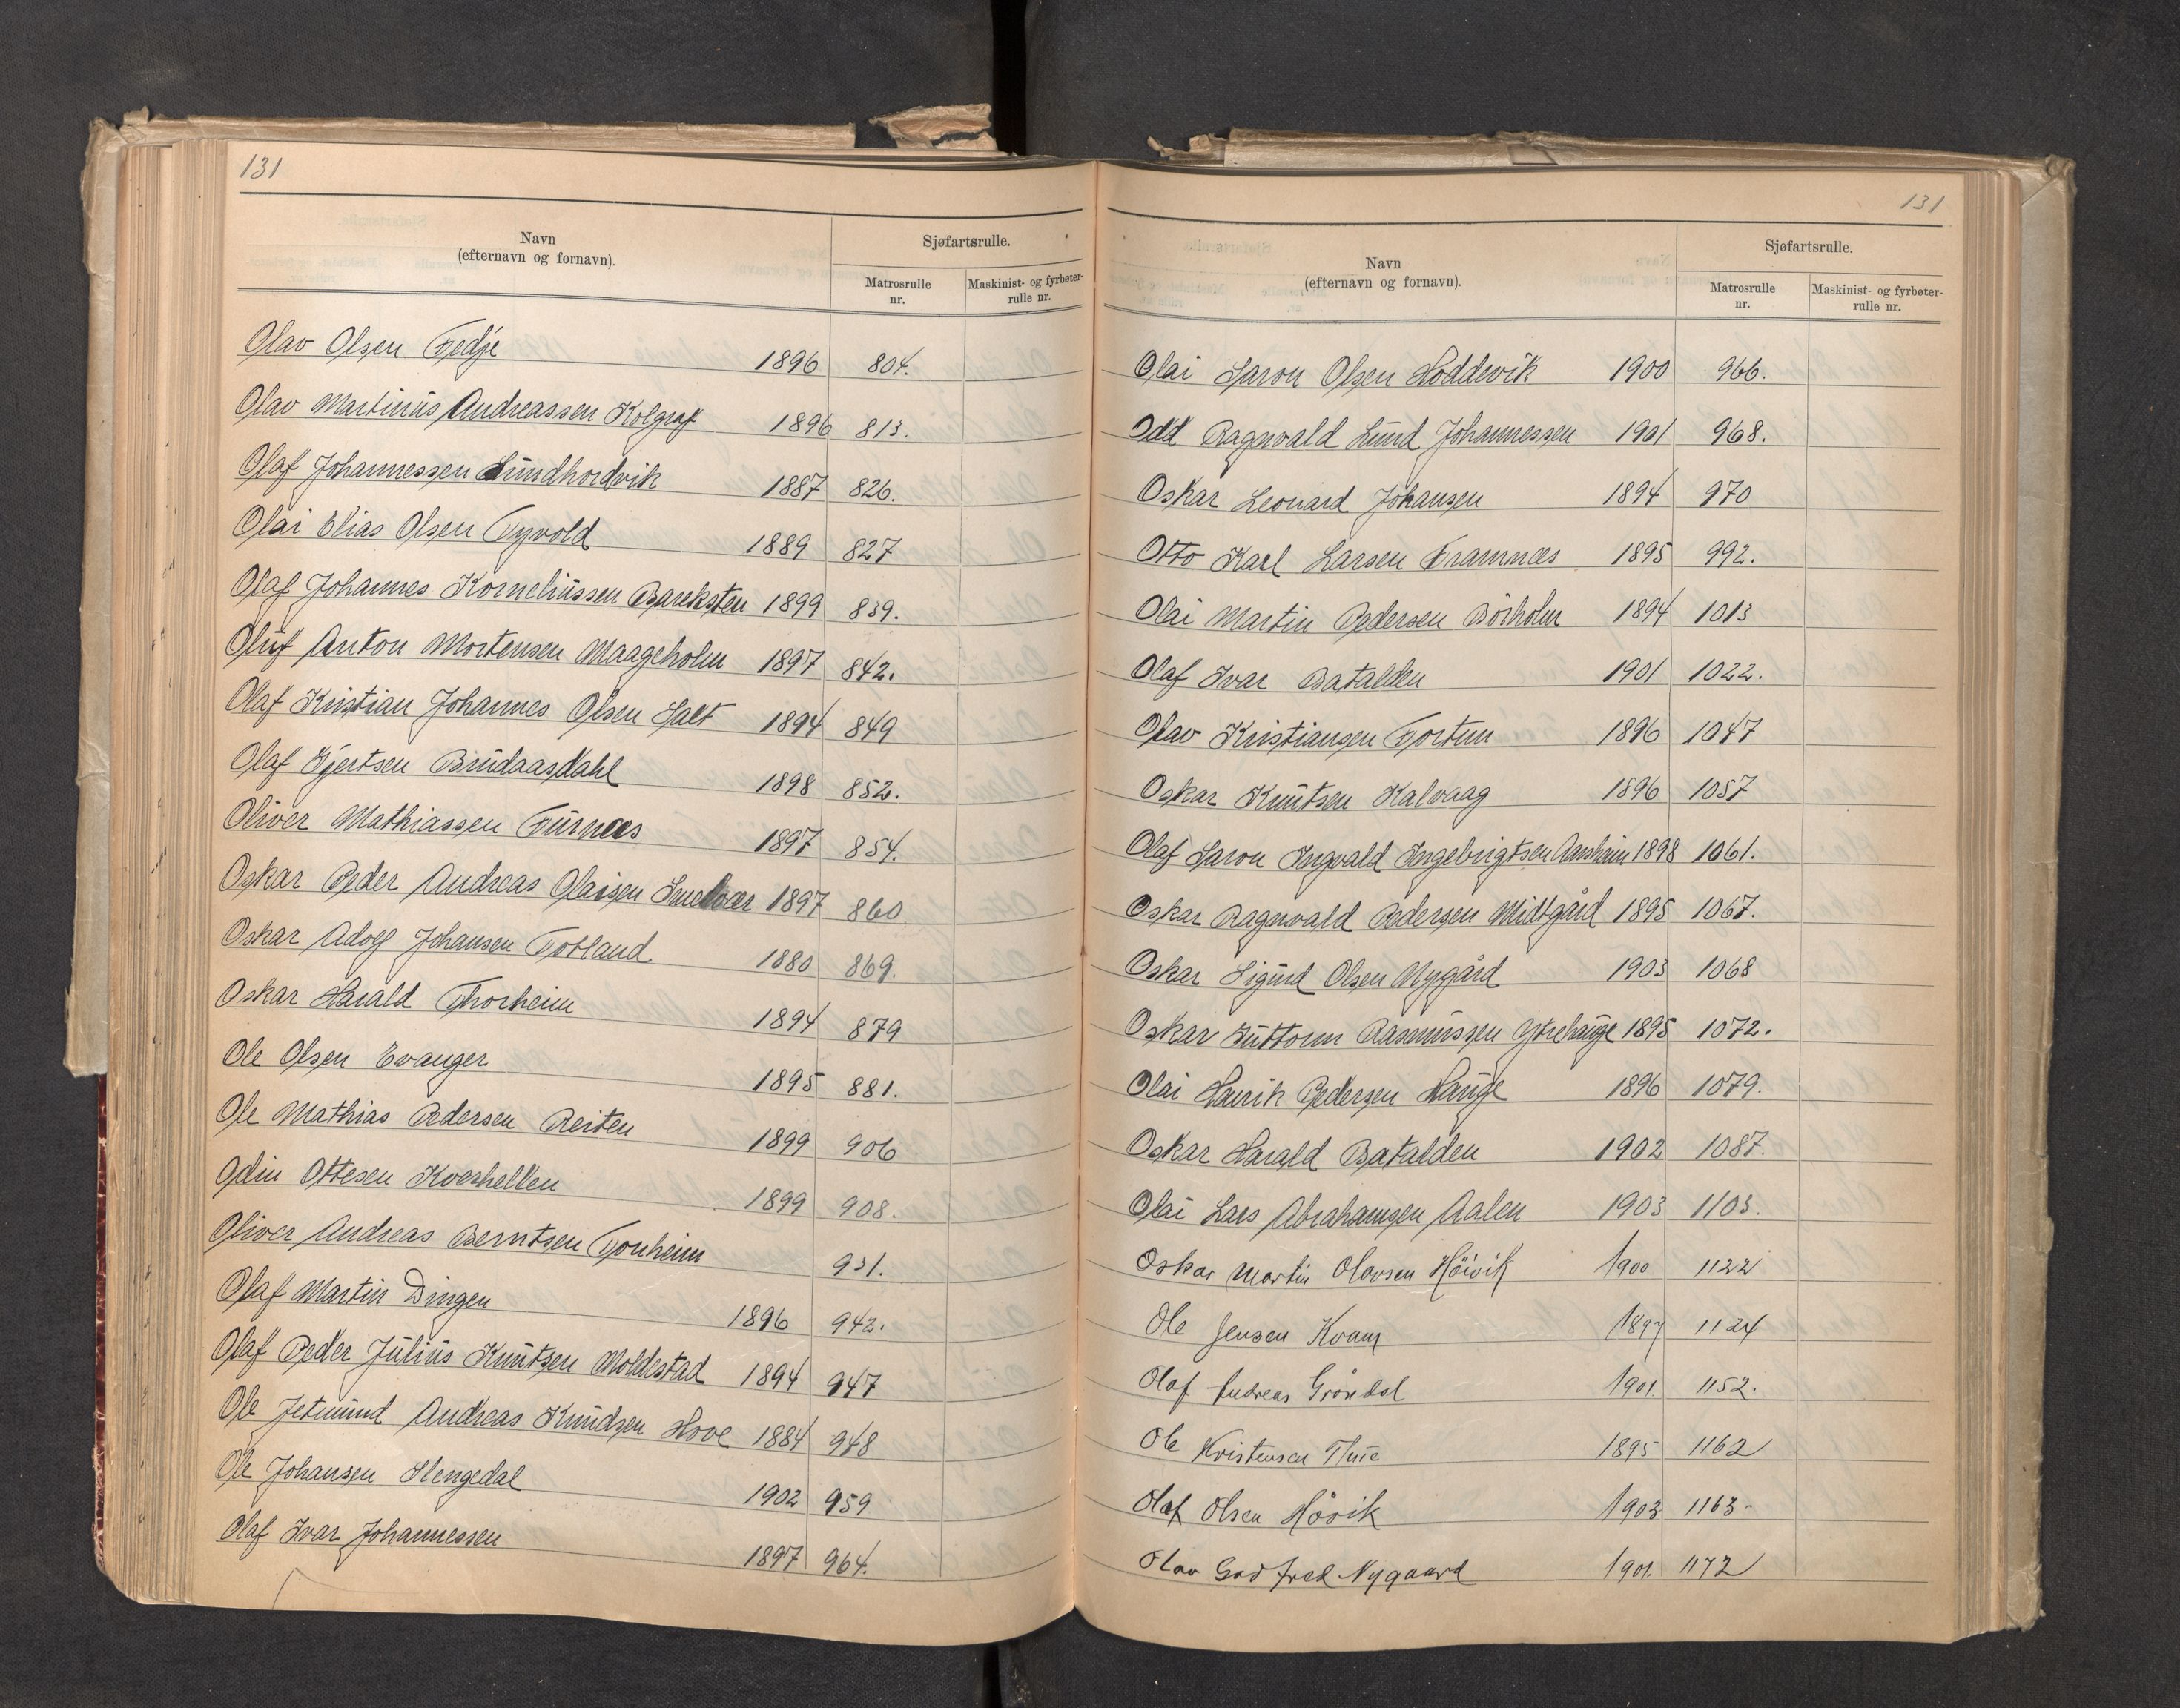 131
Navn
(efternavn og fornavn).
Sjøfartsrulle.
Matrosrulle
nr.
Maskinist- og fyrbøter-
rulle nr.
Olav Olsen Fedje 1896 804.
Olav Martinus Andreassen Kolgraf 1896 813.
Olaf Johannessen Lundhordvik 1887 826.
Olai Elias Olsen Tyvold 1889 827
Olaf Johannes Korneliussen Bareksten 1899 839.
Oluf Anton Mortensen Maageholm 1897 842.
Olaf Kristian Johannes Olsen Salt 1894 849
Olaf Gjertsen Brudaasdahl 1898 852.
Oliver Mathiassen Furnæs 1897 854.
Oskar Peder Andreas Olaisen Smelvær 1897 860
Oskar Adolf Johansen Totland 1880 869.
Oskar Harald Thorheim 1894 879
Ole Olsen Evanger 1895 881.
Ole Mathias Pedersen Reiten 1899 906
Odin Ottesen Kveshellen 1899 908.
Oliver Andreas Berntsen Tonheim 931.
Olaf Martin Dingen 1896 942.
Olaf Peder Julius Knutsen Moldestad 1894 947
Ole Jetmund Andreas Knudsen Hove 1884 948
Ole Johansen Slengedal 1902 959
Olaf Ivar Johannessen 1897 964.
131
Navn
(efternavn og fornavn).
Sjøfartsrulle.
Matrosrulle
nr.
Maskinist- og fyrbøter-
rulle nr.
Olai Saron Olsen Hoddevik 1900 966.
Odd Ragnvald Lund Johannessen 1901 968.
Oskar Leonard Johansen 1894 970
Otto Karl Larsen Framnæs 1895 992.
Olai Martin Pedersen Börholm 1894 1013
Olaf Ivar Batalden 1901 1022.
Olav Kristiansen Fortun 1896 1047
Oskar Knutsen Kalvaag 1896 1057
Olaf Saron Ingvald Ingebrigtsen Aarsheim 1898 1061.
Oskar Ragnvald Pedersen Midtgård 1895 1067.
Oskar Sigurd Olsen Nygård 1903 1068
Oskar Guttorm Rasmussen Ytrehauge 1895 1072.
Olai Henrik Pedersen Hauge 1896 1079.
Oskar Harald Batalden 1902 1087.
Olai Lars Abrahamsen Aalen 1903 1103.
Oskar Martin Olavsen Höivik 1900 1122
Ole Jensen Kvam 1897 1124
Olaf Andreas Gröndal 1901. 1152.
Ole Kristensen Thue 1895 1162
Olaf Olsen Hövik 1903 1163-
Olav Godfred Nygaard 1901. 1172